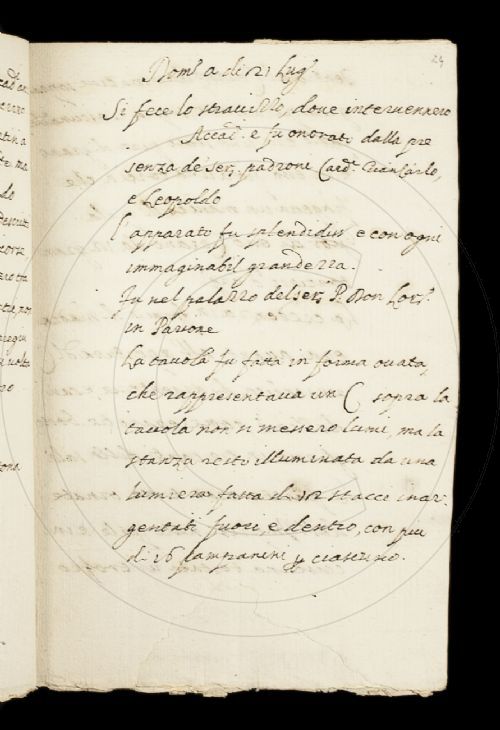 24
Dom.ᵃ a di 21 Lugˡ
Si fece lo stravizzo, dove intervennero
Accaᶜⁱ e fu onorati dalla pre
senza de Serᵐⁱ padroni Cardⁱ Gian Carlo,
e Leopoldo
L'apparato fu splendidissᵒ e con ogni
immaginabil grandezza.
Fu nel palazzo del Serᵐᵒ P. Don Lorᶻᵒ
in Pavone
La tavola fu fatta in forma ovata,
che rappresentava un C sopra la
tavola non si messero lumi, ma la
stanza restò illuminata da una
lumiera fatta di staccj inar-
gentati fuori, e dentro, con piu
di 16 lampanini p ciascuno.